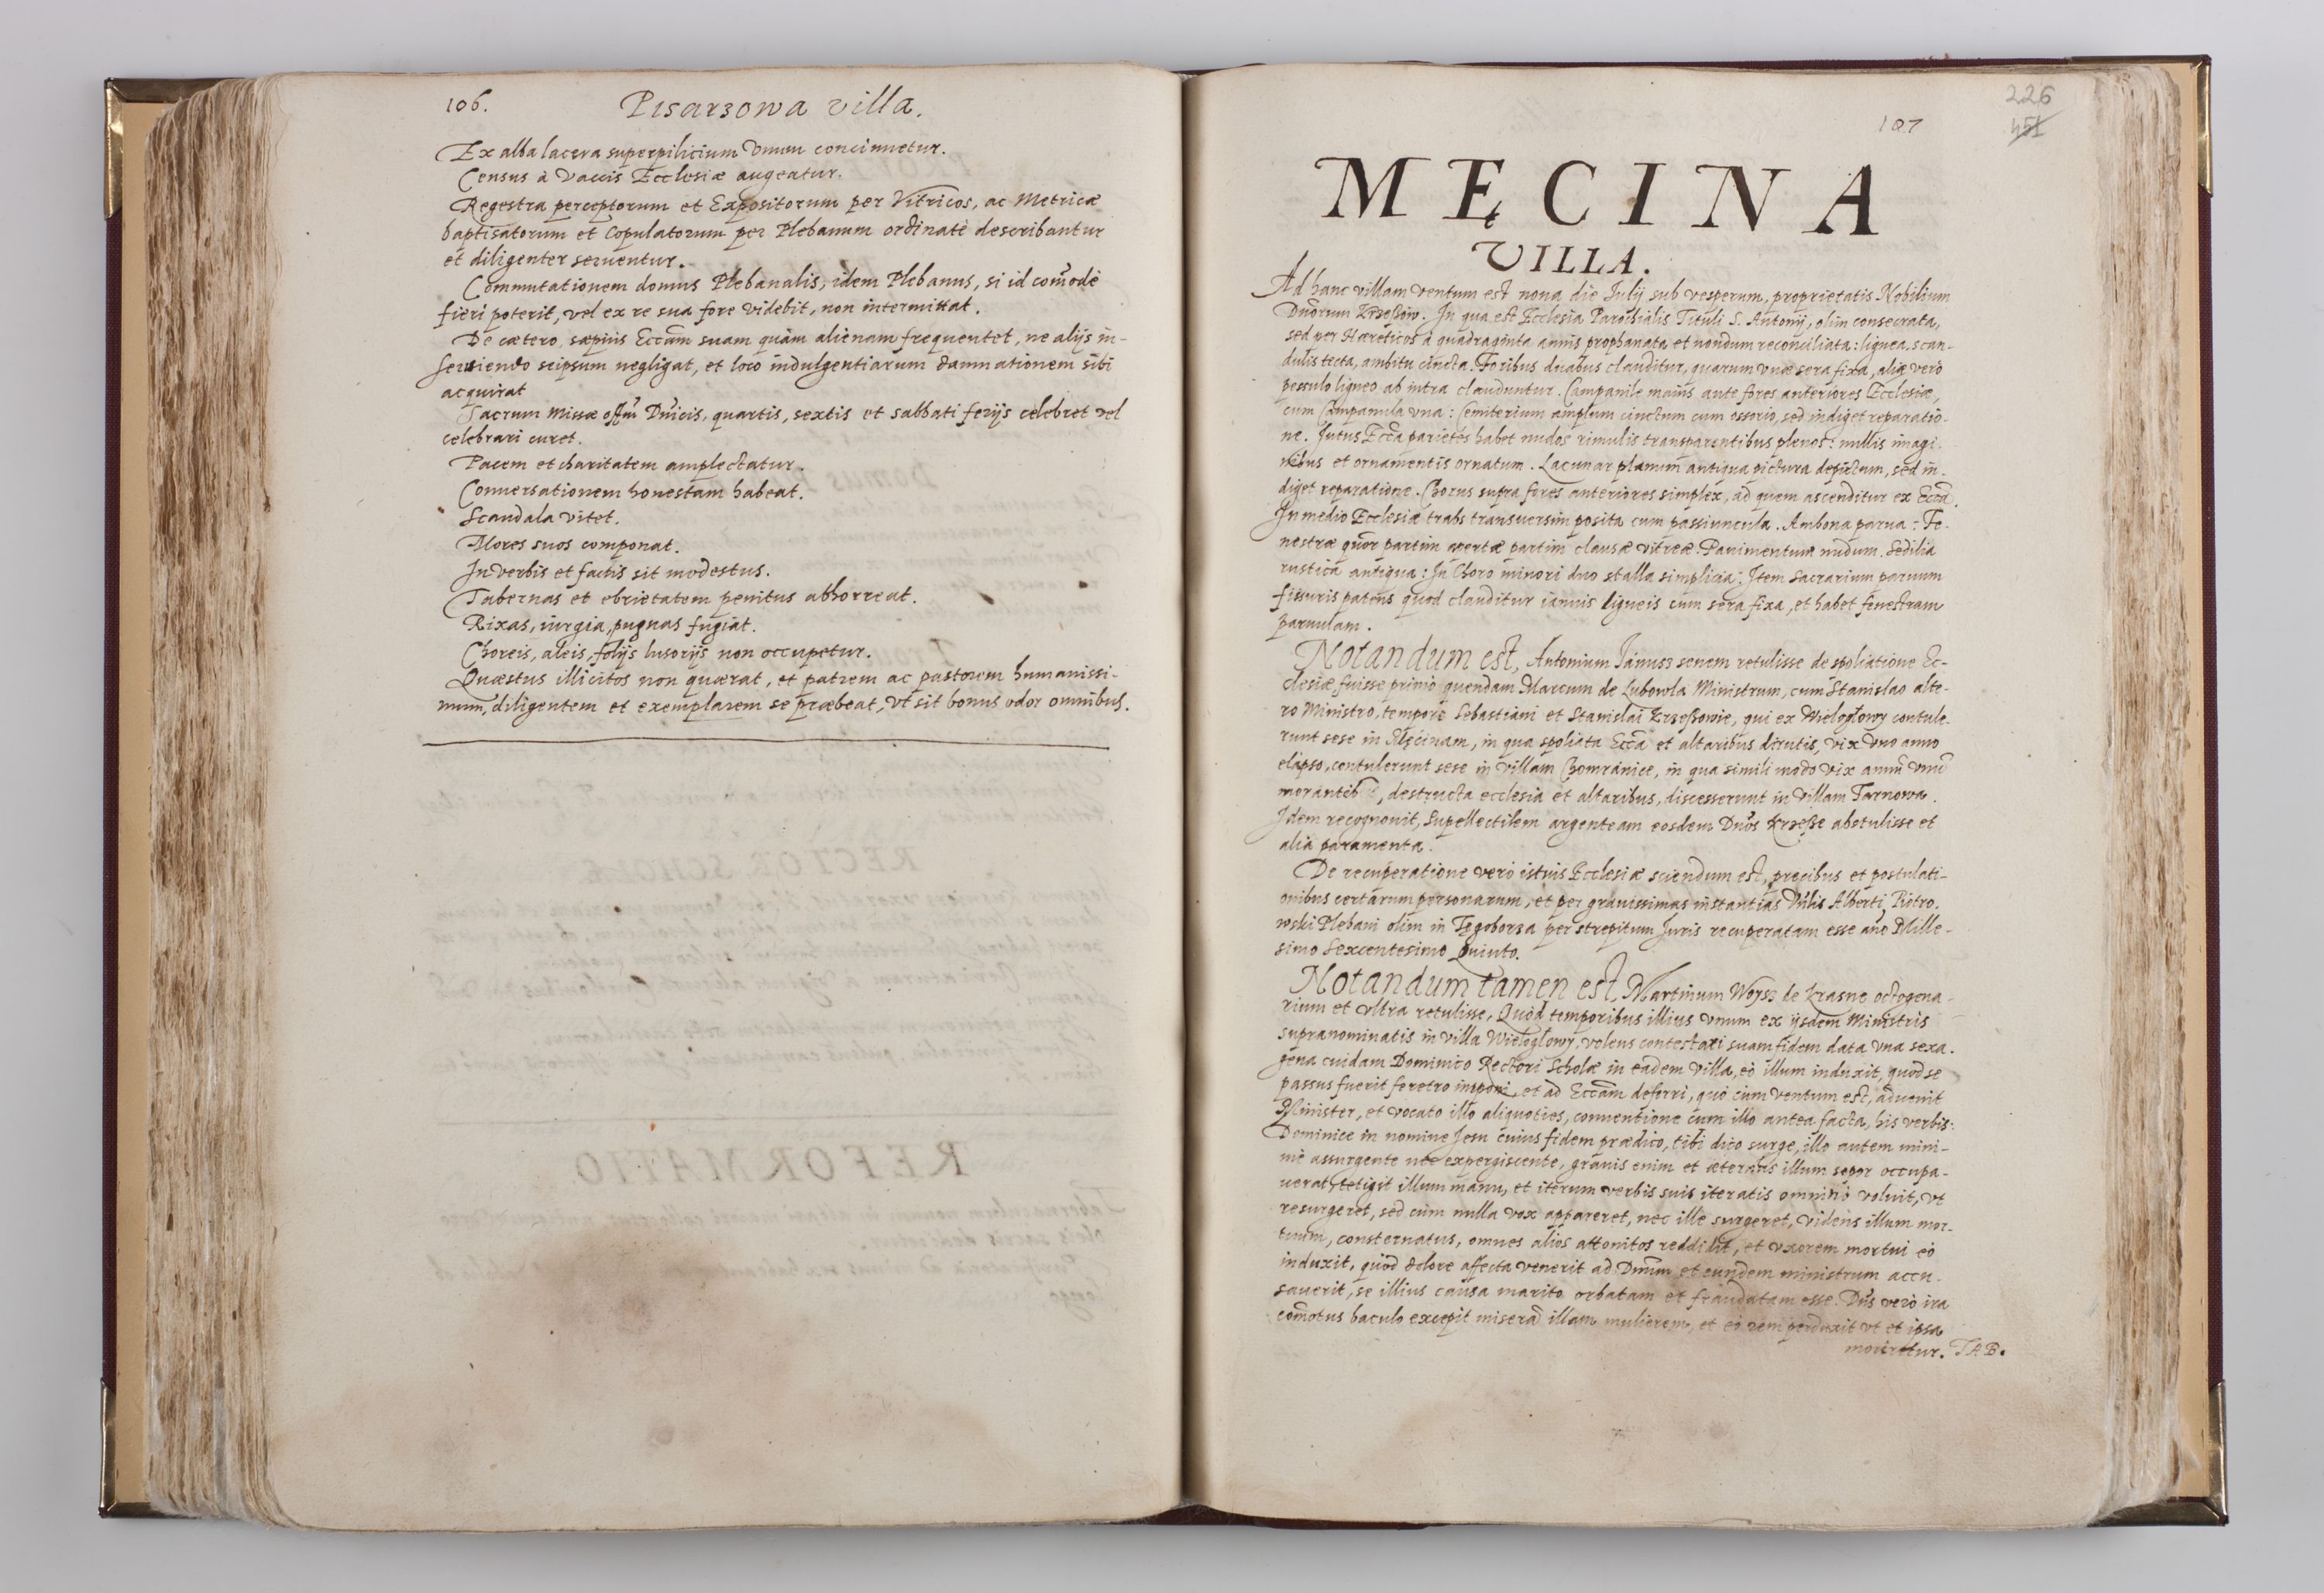 106. Pisarzowa villa.
Ex alba lacera superpilicium vnum concinnetur.
Census à vaccis Ecclesiæ augeatur.
Regestra perceptorum et Expositorum per Vitricos, ac Metricæ
baptisatorum et Copulatorum per Plebanum ordinatè describantur
et diligenter seruentur.
Commutationem domus Plebanalis, idem Plebanus, si id com̃odè
fieri poterit, vel ex re sua fore videbit, non intermittat.
De cætero, sæpius Eccãm suam quàm alienam frequentet, ne alijs in-
seruiendo seipsum negligat, et loco indulgentiarum damnationem sibi
acquirat
Sacrum Missæ offm̃ Dñicis, quartis, sextis et sabbati ferijs celebret vel
celebrari curet.
Pacem et charitatem amplectatur.
Conuersationem honestam habeat.
Scandala vitet.
Mores suos componat.
In verbis et factis sit modestus.
Tabernas et ebrietatem penitus abhorreat.
Rixas, iurgia, pugnas fugiat.
Choreis, aleis, folijs lusorijs non occupetur.
Quæstus illicitos non quærat, et patrem ac pastorem humanissi-
mum, diligentem et exemplarem se præbeat, vt sit bonus odor omnibus.
226
107 451
MĘCINA
VILLA.
Ad hanc villam ventum est nona die Iulij sub vesperum, proprietatis Nobilium
Dñorum Krzeßow. In qua est Ecclesia Parochialis Tituli S. Antonij, olim consecrata,
sed per Hæreticos à quadraginta annis prophanata et nondum reconciliata: lignea, scan-
dulis tecta, ambitu cincta. Foribus duabus clauditur, quarum vnæ sera fixa, aliæ verò
pessulo ligneo ab intra clauduntur. Campanile maius ante fores anteriores Ecclesiæ,
cum Campanula vna: Cemiterium amplum cinctum cum ossorio, sed indiget reparatio-
ne. Intus Ecca parietes habet nudos rimulis transparentibus plenos: nullis imagi-
nibus et ornamentis ornatum. Lacunar planum antiqua pictura depictum, sed in-
diget reparatione. Chorus supra fores anteriores simplex, ad quem ascenditur ex Ecca.
In medio Ecclesiæ trabs transuersim posita cum passiuncula. Ambona parua: Fe-
nestræ quor partim apertæ partim clausæ vitreæ. Pauimentum nudum. Sedilia
rustica antiqua: In Choro minori duo stalla simplicia: Item Sacrarium paruum
fissuris patens quod clauditur ianuis ligneis cum sera fixa, et habet fenestram
paruulam.
Notandum est, Antonium Ianusz senem retulisse de spoliatione Ec-
clesiæ fuisse primò quendam Marcum de Lubowla Ministrum, cum Stanislao alte-
ro Ministro, tempore Sebastiani et Stanislai Krzeßowie, qui ex Wielogłowy contule-
runt sese in Męcinam, in qua spoliata Ecca et altaribus dirutis, vix vno anno
elapso, contulerunt sese in villam Chomranice, in qua simili modo vix annũ vnũ
, destructa ecclesia et altaribus, discesserunt in villam Tarnowa.
Idem recognouit, Supellectilem argenteam eosdem Dños Krzeße abstulisse et
alia paramenta.
De recuperatione verò istius Ecclesiæ sciendum est, precibus et postulati-
onibus certarum personarum, et per grauissimas instantias Vñlis Alberti Piotro-
wski Plebani olim in Tęgoborza per strepitum Iuris recuperatam esse año Mille-
simo Sexcentesimo Quinto.
Notandum tamen est, Martinum Woysz de Krasne octogena-
rium et vltra retulisse, Quòd temporibus illius vnum ex ijsdem Ministris
supranominatis in villa Wielogłowy, volens contestari suam fidem data vna sexa-
gena cuidam Dominico Rectori Scholæ in eadem villa, eò illum induxit, quòd se
passus fuerit feretro imponi et ad Eccãm deferri, quò cùm ventum est, aduenit
Minister, et vocato illo aliquoties, conuentione cum illo antea facta, his verbis:
Dominice in nomine Iesu cuius fidem prædico, tibi dico surge, illo autem mini-
mè assurgente nec expergiscente, grauis enim et æternus illum sopor occupa-
uerat, tetigit illum manu, et iterum verbis suis iteratis omninò voluit, vt
resurgeret, sed cùm nulla vox appareret, nec ille surgeret, videns illum mor-
tuum, consternatus, omnes alios attonitos reddidit, et vxorem mortui eò
induxit, quòd dolore affecta venerit ad Dnum et eundem ministrum accu-
sauerit, se illius causa marito orbatam et fraudatam esse. Dñs verò ira
com̃otus baculo excepit miserã illam mulierem, et eò rem perduxit vt et ipsa
moreretur. TAB.